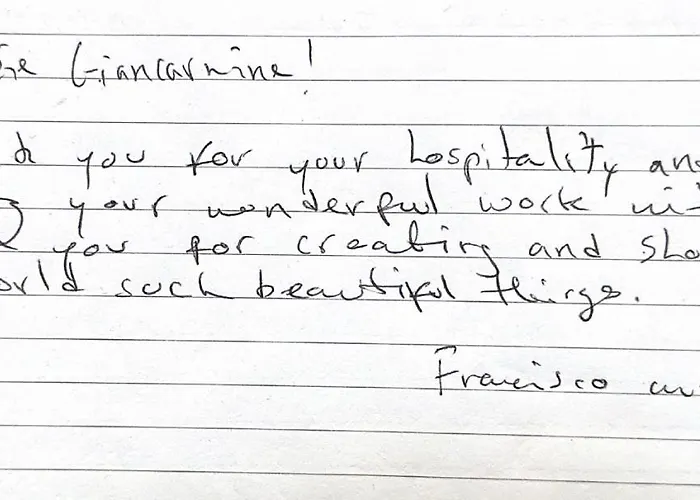 Giancarmine!
you for your hospitality an
your wonderful work wi
you for creating and sho
orld such beautiful things.
Francisco an